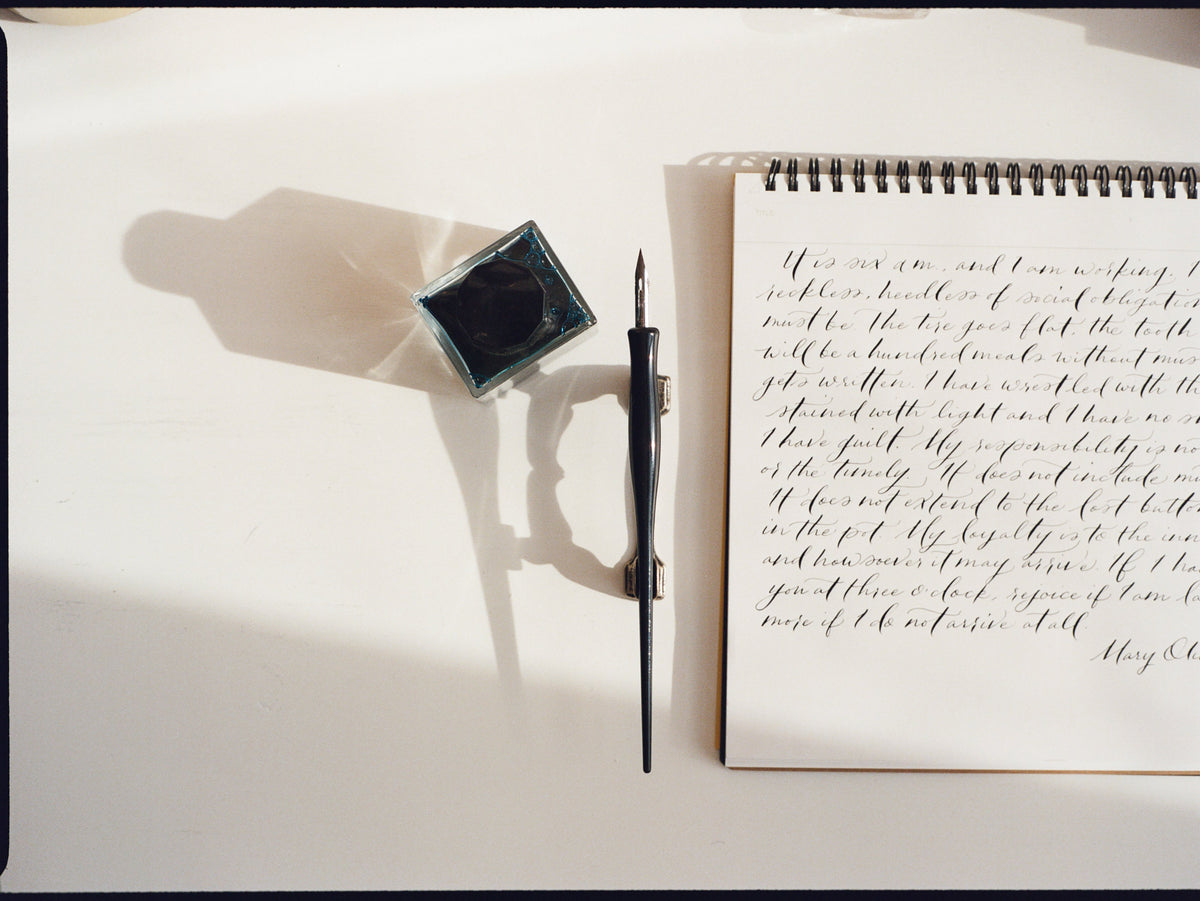 TITLE
It is six a.m., and I am working. I
reckless, heedless of social obligatio
must be. The tire goes flat, the tooth
will be a hundred meals without mus
gets written. I have wrestled with th
stained with light and I have no s
I have guilt. My responsibility is no
or the timely. It does not include mu
It does not extend to the lost button
in the pot. My loyalty is to the inn
and howsoever it may arrive. If I ha
you at three o'clock, rejoice if I am la
more if I do not arrive at all.
Mary Oli